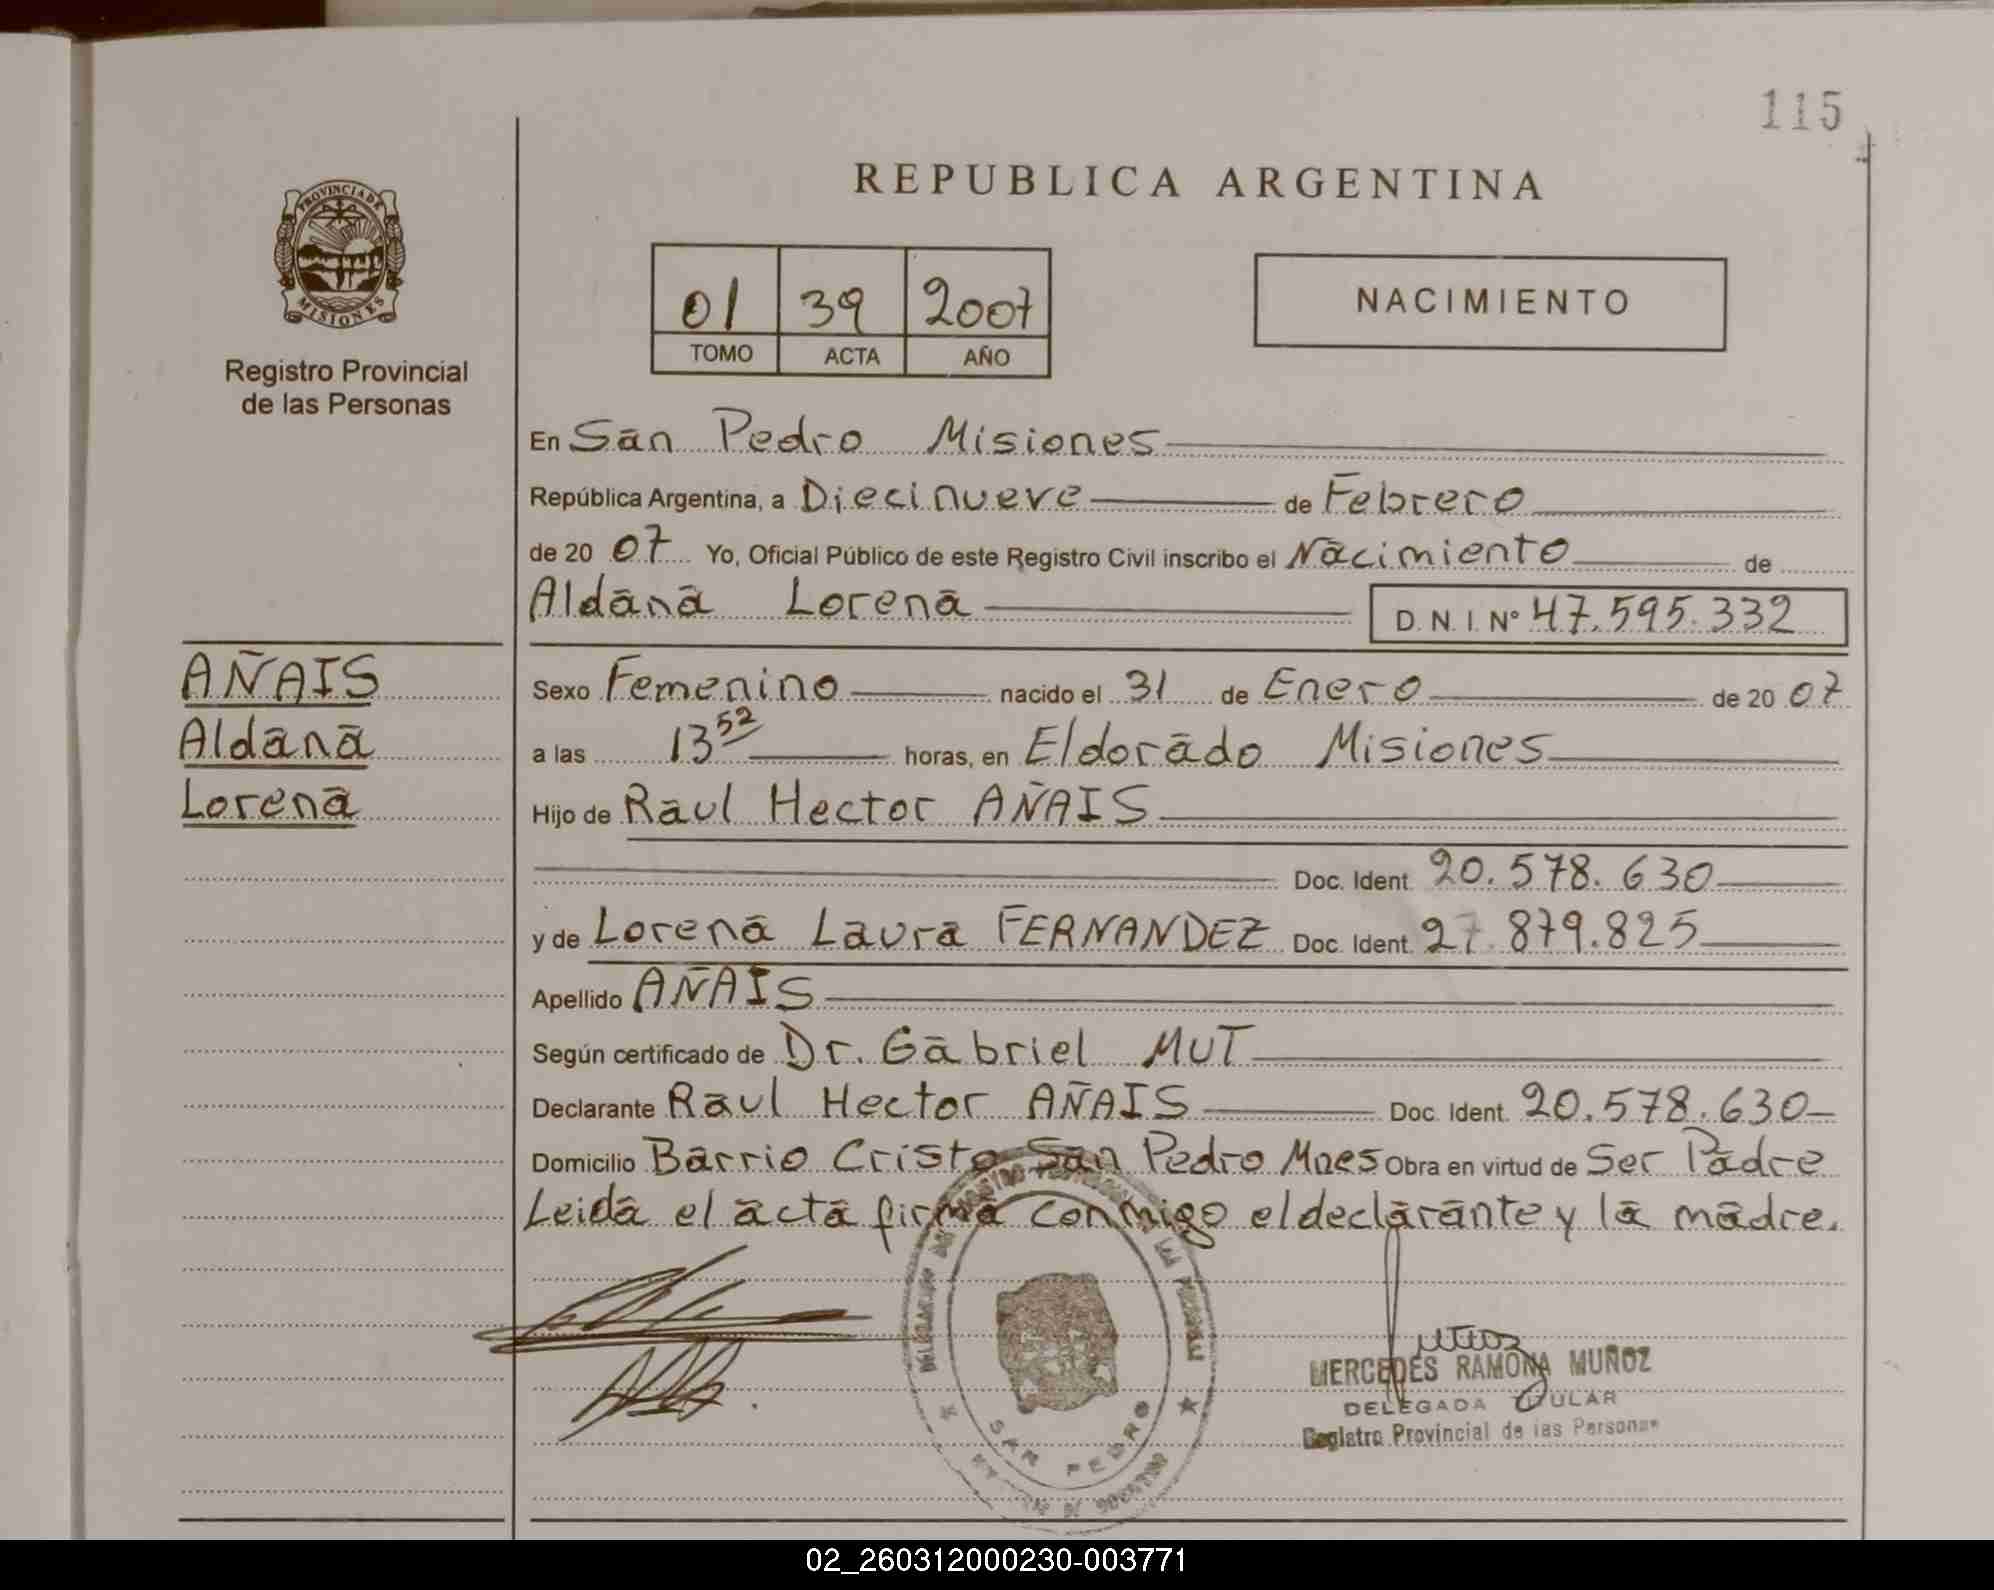 115
REPUBLICA ARGENTINA
PROVINCIA DE
MISIONES
Registro Provincial
de las Personas
01 39 2007
TOMO ACTA AÑO
NACIMIENTO
En San Pedro Misiones
República Argentina, a Diecinueve de Febrero
de 20 07 Yo, Oficial Público de este Registro Civil inscribo el Nacimiento de
Aldana Lorena D. N. I. Nº 47.595.332
AÑAIS
Aldana
Lorena
Sexo Femenino nacido el 31 de Enero de 20 07
a las 13 52 horas, en Eldorado Misiones
Hijo de Raul Hector AÑAIS
Doc. Ident. 20.578.630
y de Lorena Laura FERNANDEZ Doc. Ident. 27.879.825
Apellido AÑAIS
Según certificado de Dr. Gabriel MUT
Declarante Raul Hector AÑAIS Doc. Ident. 20.578.630
Domicilio Barrio Cristo San Pedro Mnes Obra en virtud de Ser Padre
Leida el acta firma conmigo el declarante y la madre.
SAN PEDRO
MERCEDES RAMONA MUÑOZ
DELEGADA TITULAR
Registro Provincial de las Personas
02_260312000230-003771